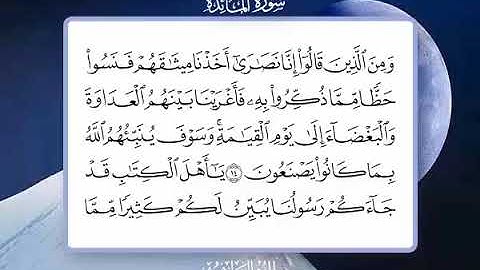 سُورَةُ المَائِدَةِ
وَمِنَ ٱلَّذِينَ قَالُوٓا۟ إِنَّا نَصَٰرَىٰٓ أَخَذْنَا مِيثَٰقَهُمْ فَنَسُوا۟
حَظًّا مِّمَّا ذُكِّرُوا۟ بِهِۦ فَأَغْرَيْنَا بَيْنَهُمُ ٱلْعَدَاوَةَ
وَٱلْبَغْضَآءَ إِلَىٰ يَوْمِ ٱلْقِيَٰمَةِ ۚ وَسَوْفَ يُنَبِّئُهُمُ ٱللَّهُ
بِمَا كَانُوا۟ يَصْنَعُونَ ١٤ يَٰٓأَهْلَ ٱلْكِتَٰبِ قَدْ
جَآءَكُمْ رَسُولُنَا يُبَيِّنُ لَكُمْ كَثِيرًا مِّمَّا